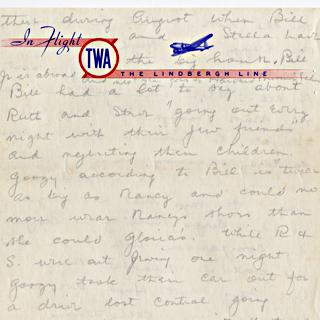 their during August when Bill
and Stella have
In Flight
TWA
the big house. Bill
THE LINDBERGH LINE
Jr is abroad and
Bill had a lot to say about
Rutt and Stror "going out every
night with their few friends"
and neglecting their children.
Goozy according to Bill is "twice
as big as Nancy and could no
more wear Nancys shoes than
she could Glorias. While R &
S. were out Irving one night
goozy took their car out for
a drive lost control going